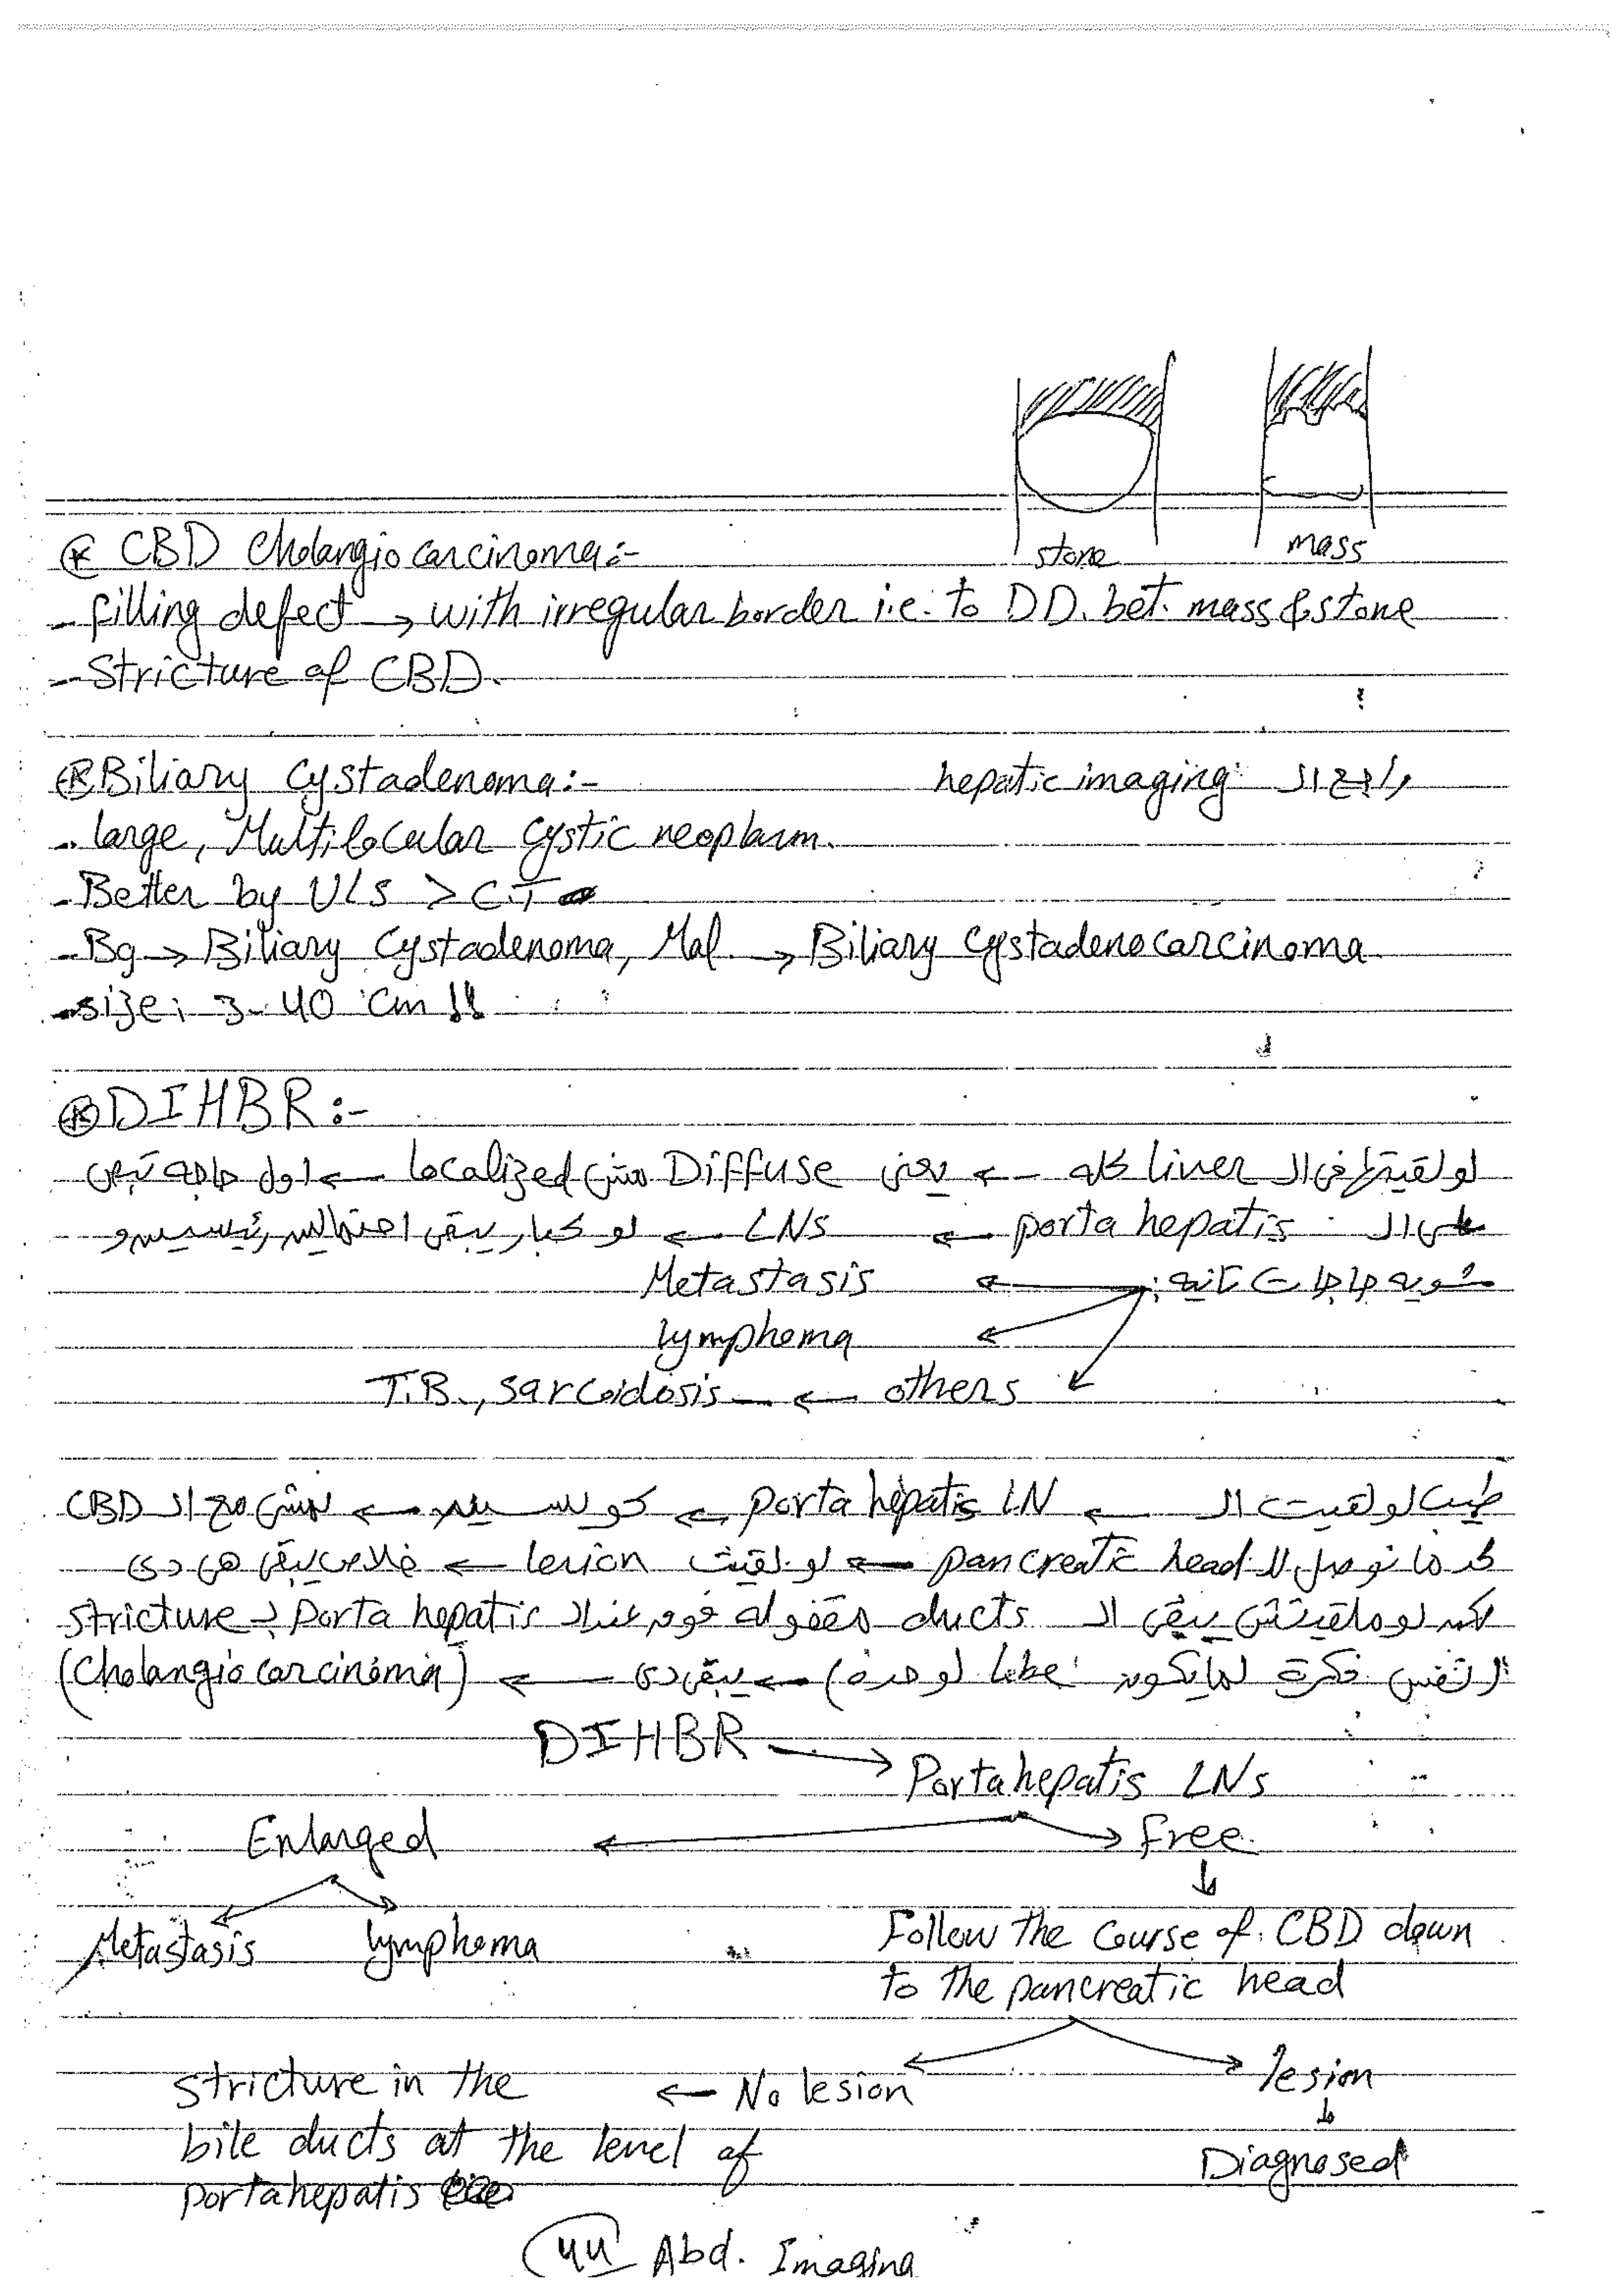 stone mass
* CBD Cholangiocarcinoma:-
- filling defect → with irregular border i.e. to DD. bet. mass & stone
- Stricture of CBD.
* Biliary Cystadenoma:- راجع الـ hepatic imaging
- large, Multilocular Cystic neoplasm.
- Better by U/S > CT
- Bg → Biliary Cystadenoma, Mal. → Biliary Cystadenocarcinoma
- size: 3-40 cm !!
* DIHBR:-
لو لقيتها في الـ liver كله ← يعني Diffuse مش Localized ← اول حاجه تبص
على الـ porta hepatis ← LNs ← لو كبار يبقى احتمالين رئيسيين و
شوية حاجات تانيه: ← Metastasis
← lymphoma
others ← T.B., sarcoidosis
طيب لو لقيت الـ porta hepatis LN ← كويسين ← نمشي مع الـ CBD
لحد ما نوصل للـ pancreatic head ← لو لقيت lesion ← خلاص يبقى هي دي
لكن لو مالقيتش يبقى الـ ducts مقفوله فوق عند الـ Porta hepatis بـ stricture
(نفس فكرة لما يكون lobe لوحده) ← يبقى دي ← (Cholangiocarcinoma)
DIHBR → Porta hepatis LNs
Enlarged ← → free
↓
Metastasis lymphoma Follow the Course of CBD down
to the pancreatic head
stricture in the ← No lesion lesion
↓
bile ducts at the level of Diagnosed
porta hepatis
44 Abd. Imaging